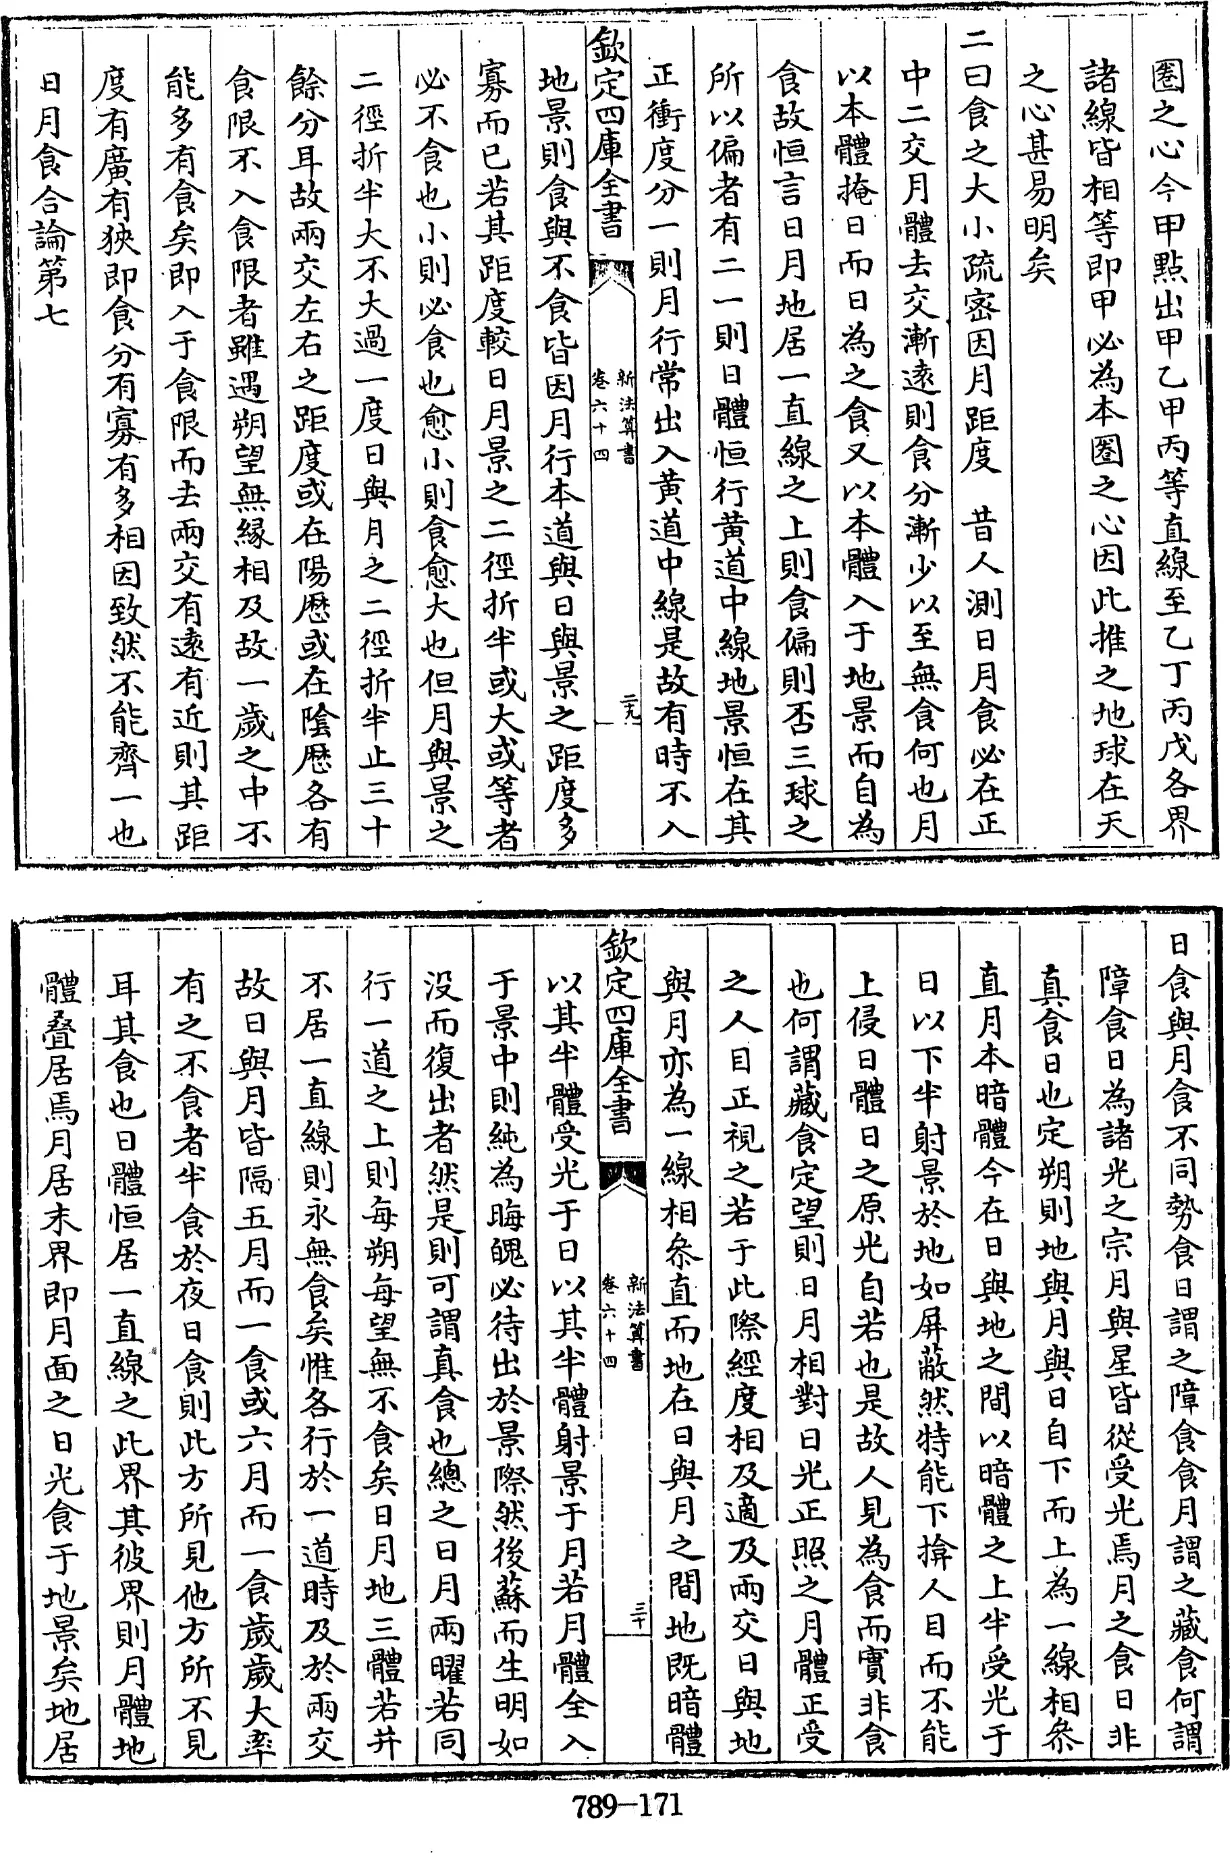 圏之心今甲點出甲乙甲丙等直線至乙丁丙戊各界
諸線皆相等即甲必為本圏之心因此推之地球在天
之心甚易明矣
二曰食之大小疏密因月距度　昔人測日月食必在正
中二交月體去交漸逺則食分漸少以至無食何也月
以本體掩日而日為之食又以本體入于地景而自為
食故恒言日月地居一直線之上則食偏則否三球之
所以偏者有二一則日體恒行黄道中線地景恒在其
正衝度分一則月行常出入黄道中線是故有時不入
欽定四庫全書
新法算書
卷六十四
二九
地景則食與不食皆因月行本道與日與景之距度多
寡而已若其距度較日月景之二徑折半或大或等者
必不食也小則必食也愈小則食愈大也但月與景之
二徑折半大不大過一度日與月之二徑折半止三十
餘分耳故兩交左右之距度或在陽厯或在隂厯各有
食限不入食限者雖遇朔望無縁相及故一歲之中不
能多有食矣即入于食限而去兩交有逺有近則其距
度有廣有狹即食分有寡有多相因致然不能齊一也
日月食合論第七
日食與月食不同勢食日謂之障食食月謂之藏食何謂
障食日為諸光之宗月與星皆從受光焉月之食日非
真食日也定朔則地與月與日自下而上為一線相叅
直月本暗體今在日與地之間以暗體之上半受光于
日以下半射景於地如屏蔽然特能下揜人目而不能
上侵日體日之原光自若也是故人見為食而實非食
也何謂藏食定望則日月相對日光正照之月體正受
之人目正視之若于此際經度相及適及兩交日與地
與月亦為一線相叅直而地在日與月之間地既暗體
欽定四庫全書
新法算書
卷六十四
三十
以其半體受光于日以其半體射景于月若月體全入
于景中則純為晦魄必待出於景際然後蘇而生明如
没而復出者然是則可謂真食也總之日月兩曜若同
行一道之上則每朔每望無不食矣日月地三體若并
不居一直線則永無食矣惟各行於一道時及於兩交
故日與月皆隔五月而一食或六月而一食歲歲大率
有之不食者半食於夜日食則此方所見他方所不見
耳其食也日體恒居一直線之此界其彼界則月體地
體叠居焉月居末界即月面之日光食于地景矣地居
789-171